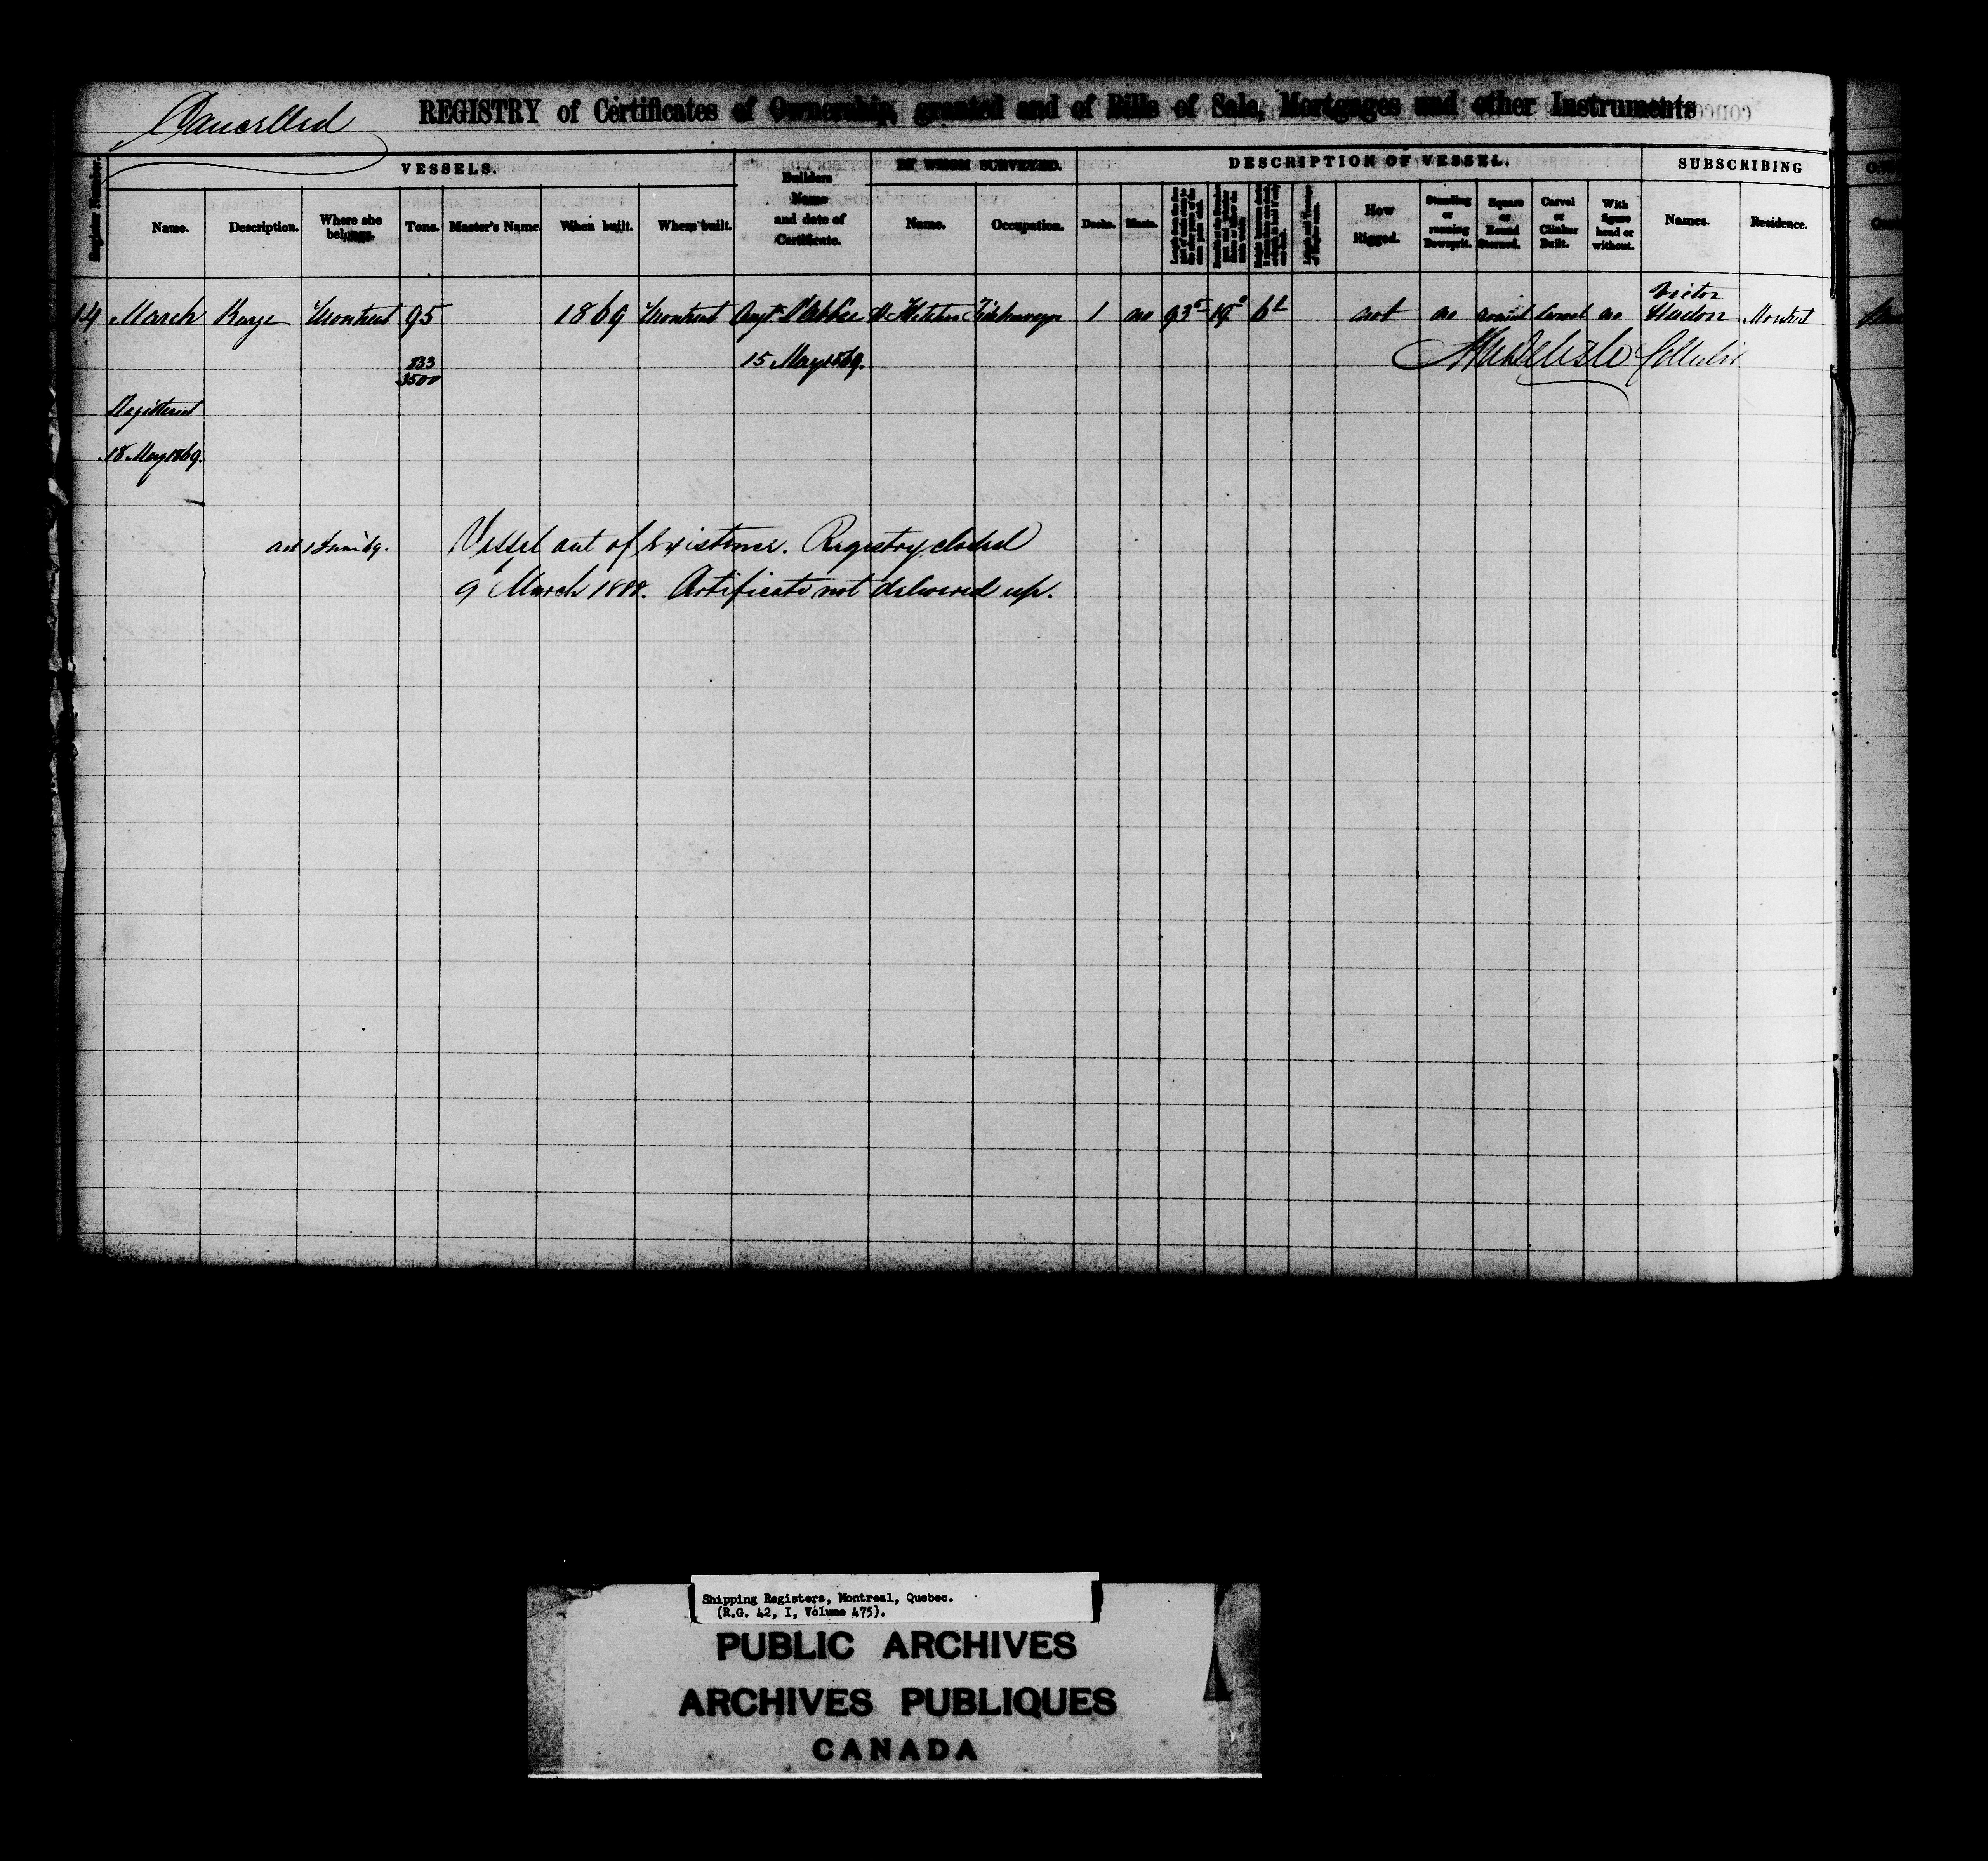 Cancelled
REGISTRY of Certificates of Ownership, granted and of Bills of Sale, Mortgages and other Instruments
Register Number.
VESSELS.
Builders Name and date of Certificate.
BY WHOM SURVEYED.
DESCRIPTION OF VESSEL.
SUBSCRIBING
Name. Description. Where she belongs. Tons. Master's Name. When built. Where built. Name. Occupation. Decks. Masts. How Rigged. Standing or running Bowsprit. Square or Round Sterned. Carvel or Clinker Built. With figure head or without. Names. Residence.
14 March Barge Montreal 95 1869 Montreal Augt L'Abbée 1 no 93 19 6 not no round Carvel no Victor Hudon Montreal
833
3500
15 May 1869.
Collector
Registered
18 May 1869.
Vessel out of Existence. Registry closed
9 March 1888. Certificate not delivered up.
Shipping Registers, Montreal, Quebec.
(R.G. 42, I, Volume 475).
PUBLIC ARCHIVES
ARCHIVES PUBLIQUES
CANADA